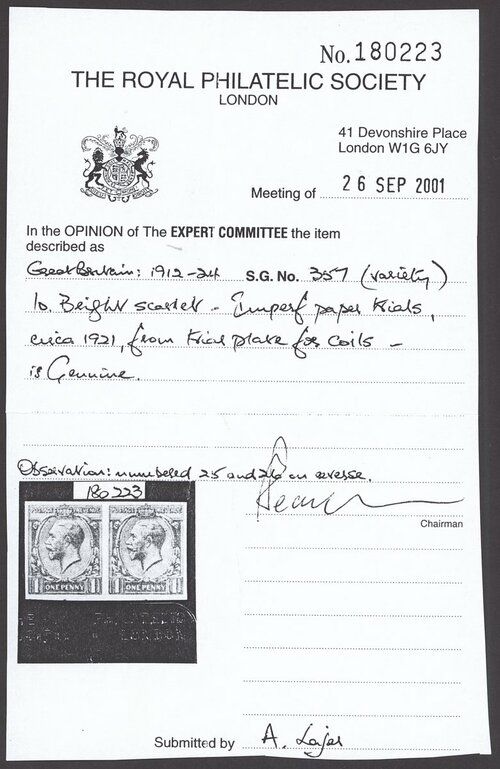 No. 180223
THE ROYAL PHILATELIC SOCIETY
LONDON
41 Devonshire Place
London W1G 6JY
Meeting of 26 SEP 2001
In the OPINION of The EXPERT COMMITTEE the item
described as
Great Britain: 1912-24 S.G. No. 357 (variety)
1d. Bright scarlet - Imperf paper trials,
circa 1921, from trial plate for coils -
is Genuine.
Observation: numbered 25 and 26 on reverse.
180223
Chairman
ONE PENNY ONE PENNY
LONDON
Submitted by A. Lajer